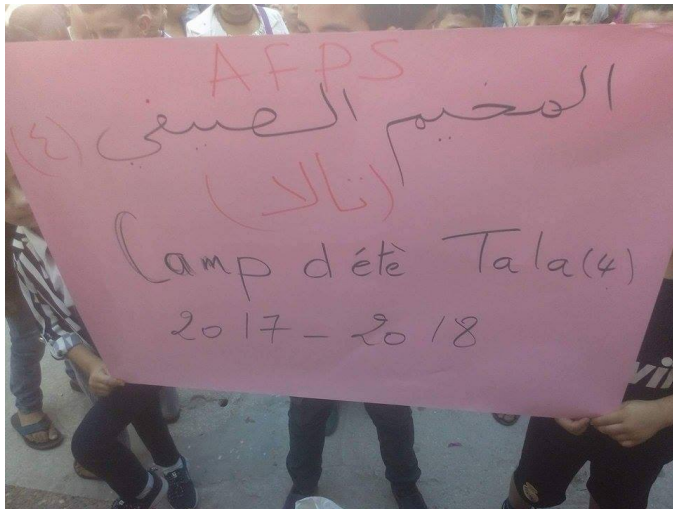 AFPS
المخيم الصيفي (٤)
(تالا)
Camp d'étè Tala(4)
2017-2018